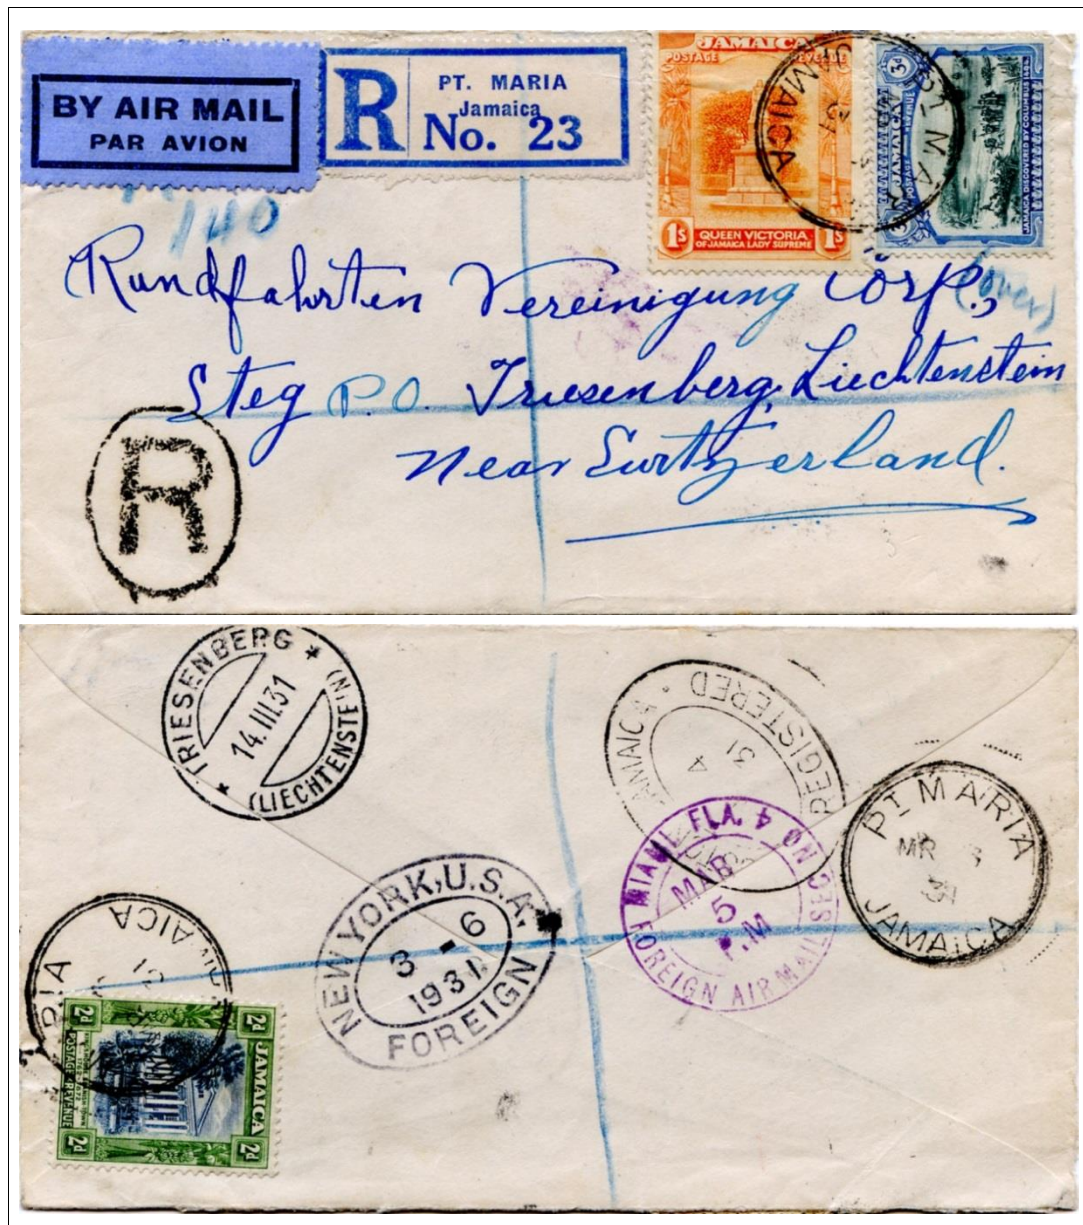 BY AIR MAIL
PAR AVION
R
PT. MARIA
Jamaica
No. 23
JAMAICA
POSTAGE REVENUE
1s QUEEN VICTORIA 1s
OF JAMAICA LADY SUPREME
JAMAICA
3d
POSTAGE & REVENUE
JAMAICA DISCOVERED BY COLUMBUS 1494
PT. MARIA
JAMAICA
140
(over)
Rundfahrten Vereinigung Corp.,
Steg P.O. Triesenberg, Liechtenstein
near Switzerland.
R
TRIESENBERG
14.III.31
(LIECHTENSTEIN)
REGISTERED
JAMAICA
4
31
MIAMI, FLA. 4
MAR
5
P.M
FOREIGN AIR MAIL SEC NO
PT MARIA
MR
31
JAMAICA
NEW YORK, U.S.A.
3 - 6
1931
FOREIGN
JAMAICA
31
RIA
JAMAICA
2d 2d
2d 2d
POSTAGE & REVENUE